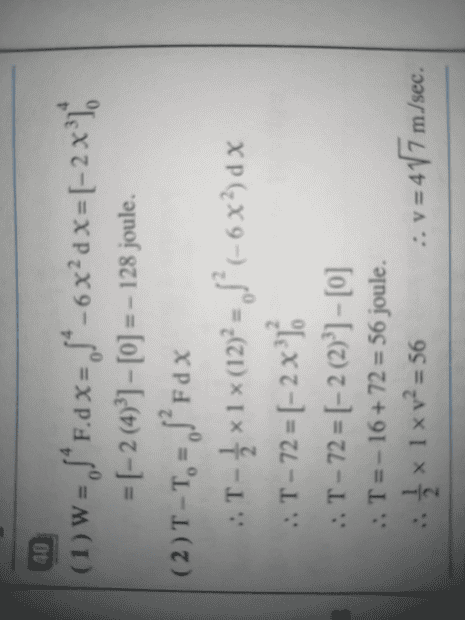 40
(1) W = ₀∫⁴ F.d x = ₀∫⁴ – 6 x² d x = [– 2 x³]₀⁴
= [– 2 (4)³] – [0] = – 128 joule.
(2) T – T₀ = ₀∫² F d x
∴ T – ½ × 1 × (12)² = ₀∫² (– 6 x²) d x
∴ T – 72 = [– 2 x³]₀²
∴ T – 72 = [– 2 (2)³] – [0]
∴ T = – 16 + 72 = 56 joule.
∴ ½ × 1 × v² = 56 ∴ v = 4√7 m/sec.